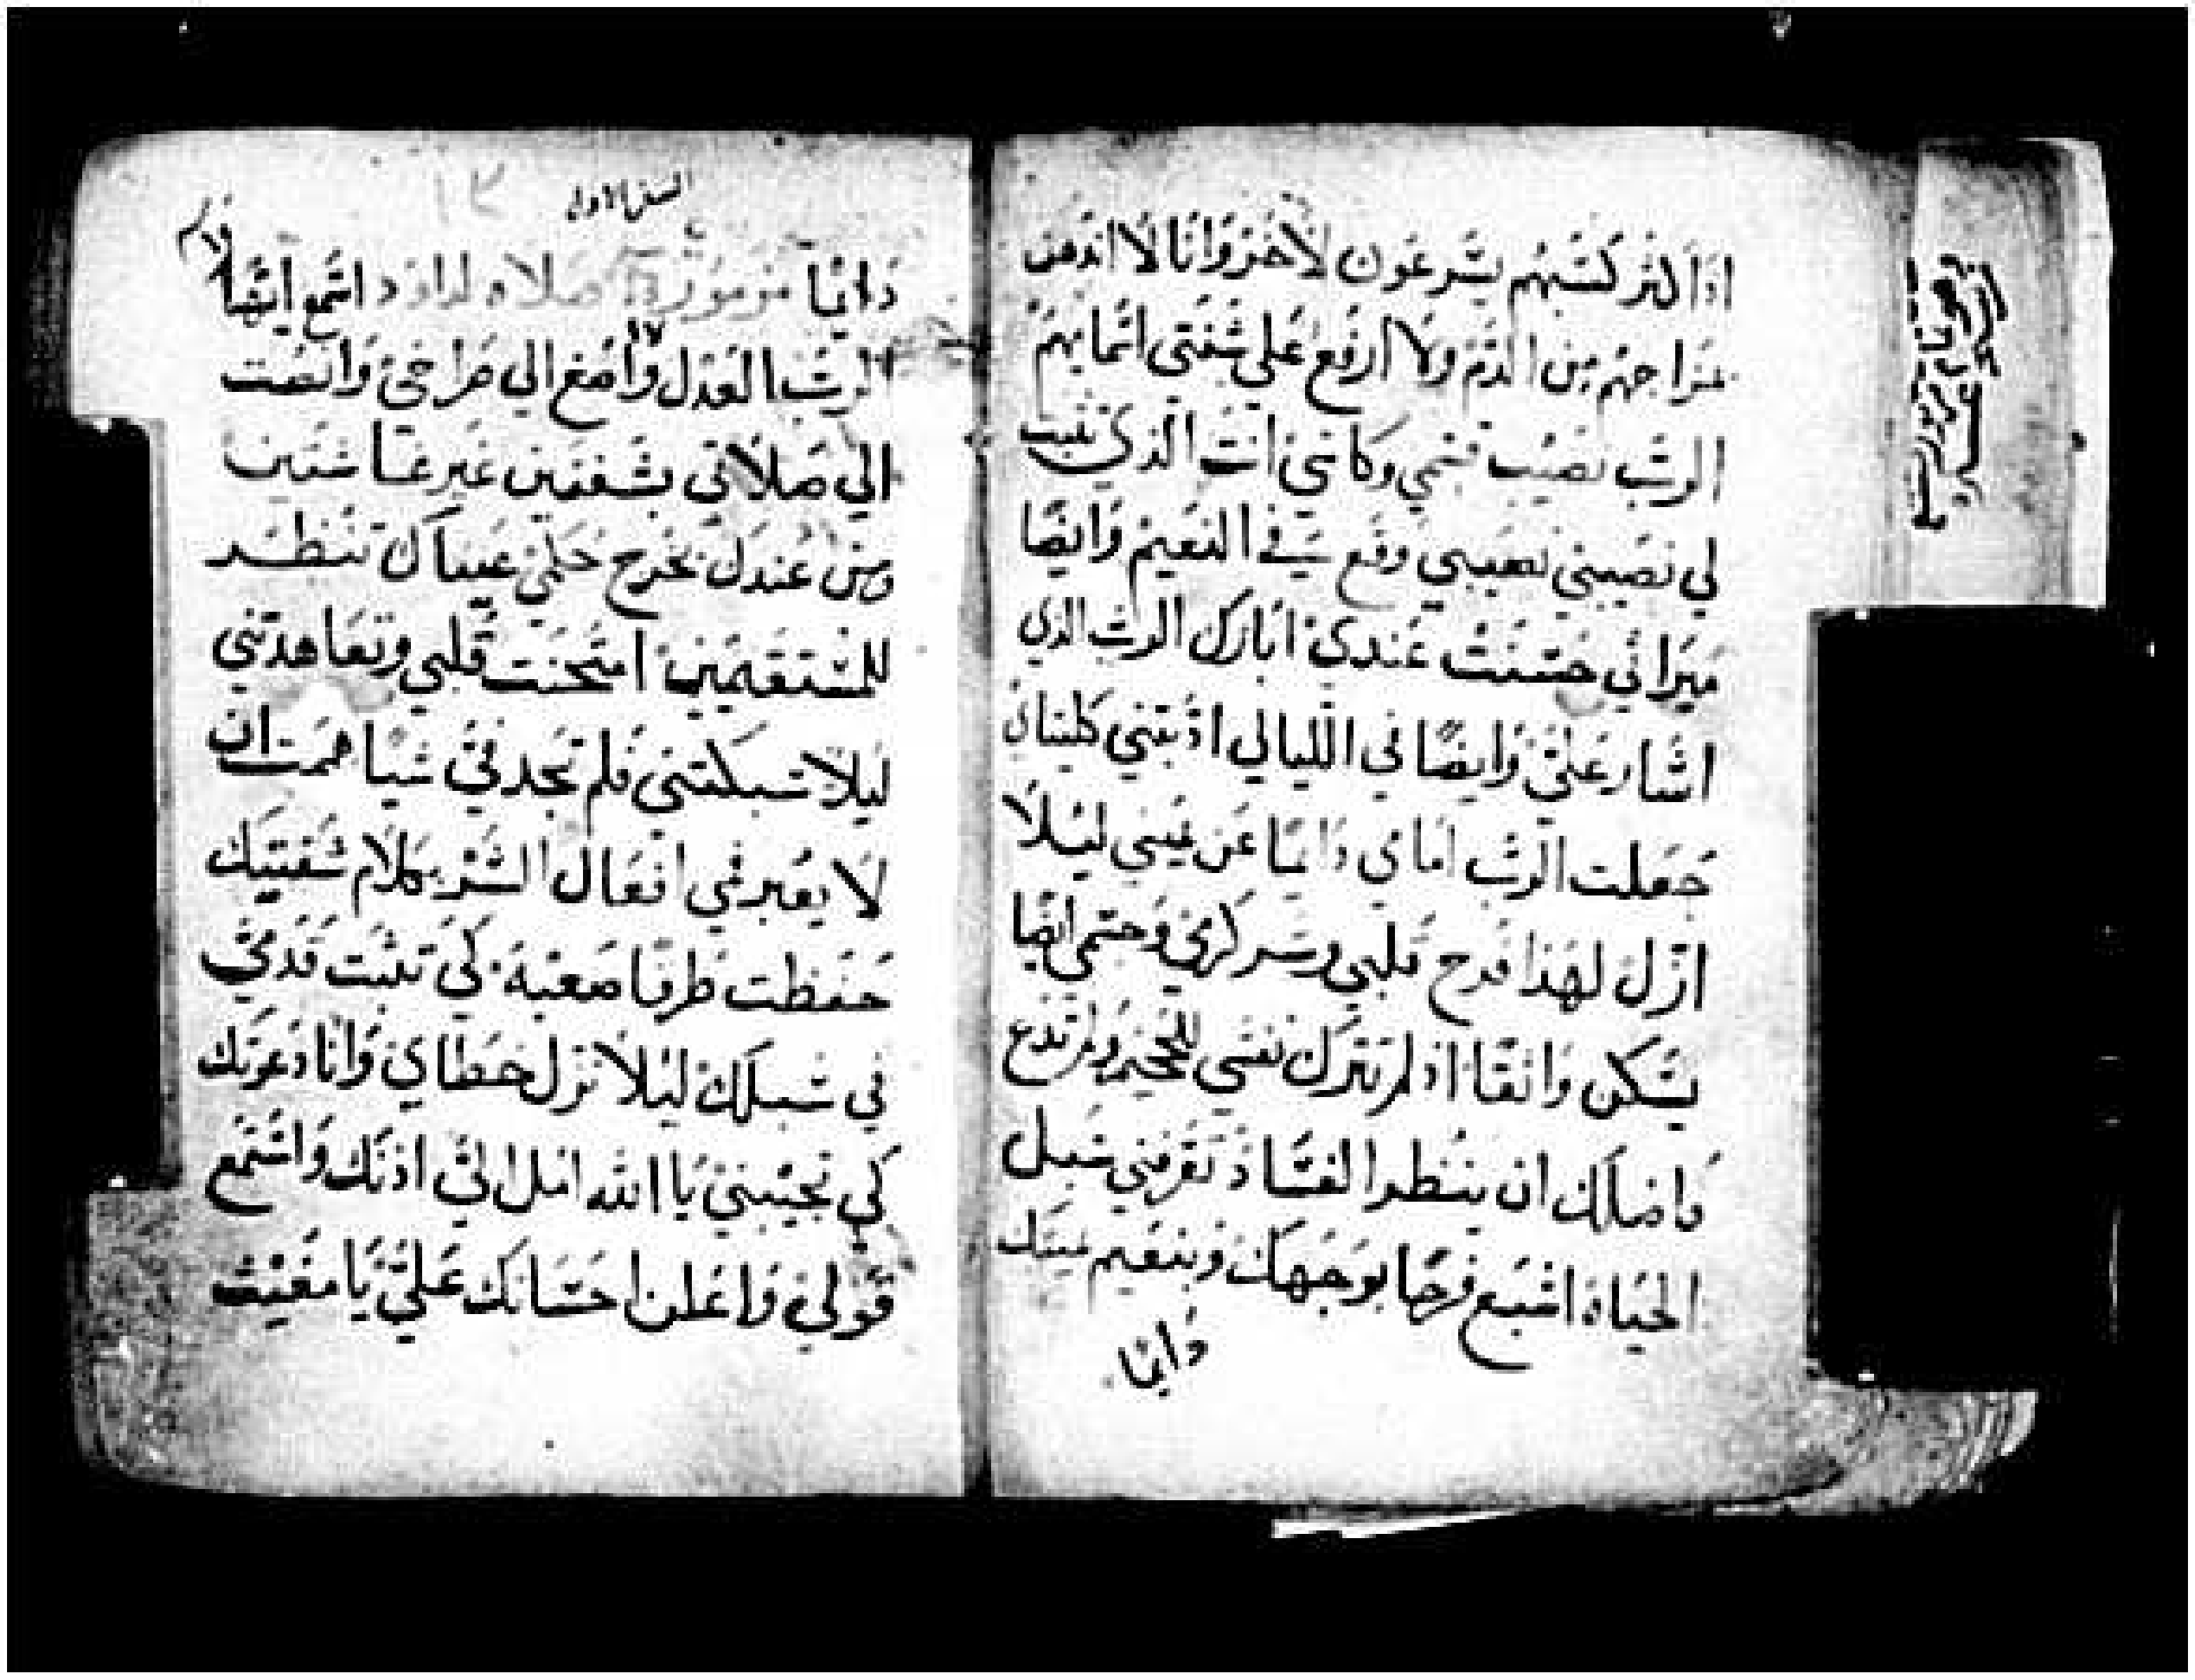 اذا كثر كسبهم يسرعون لاخر وانا لا اذهن
مزاجهم من الدم ولا ارفع علي شفتي اسمايهم
الرب نصيب قسمي وكاسي انت الذي تثبت
لي نصيبي نصيبي وقع في النعيم وايضا
ميراثي حسنت عندي ابارك الرب الذي
اشار علي وايضا في الليالي ادبتني كليتاي
جعلت الرب امامي دايما عن يميني ليلا
ازل لهذا فرح قلبي وسر كري وجسمي ايضا
يسكن واثقا اذ لم تترك نفسي للجحيم ولم تدع
فاضلك ان ينظر الفساد تعرفني سبل
الحياة اشبع فرحا بوجهك وبنعيم يمينك
دايما
السفر الاول
دايما مزمور صلاه لداود استمع ايها
الرب العدل واصغ الي صراخي وانصت
الي صلاتي بشفتين غير غاشتين
ومن عندك يخرج حكمي عيناك تنظر
للمستقيمين امتحنت قلبي وتعاهدتني
ليلا سبكتني فلم تجد في شيا هممت ان
لا يعبر فمي افعال الشر بكلام شفتيك
حفظت طرقا صعبة كي تثبت قدمي
في سبلك ليلا تزل خطاي وانا دعوتك
كي تجيبني يا الله امل الي اذنك واستمع
قولي واعلن احسانك علي يا مغيث